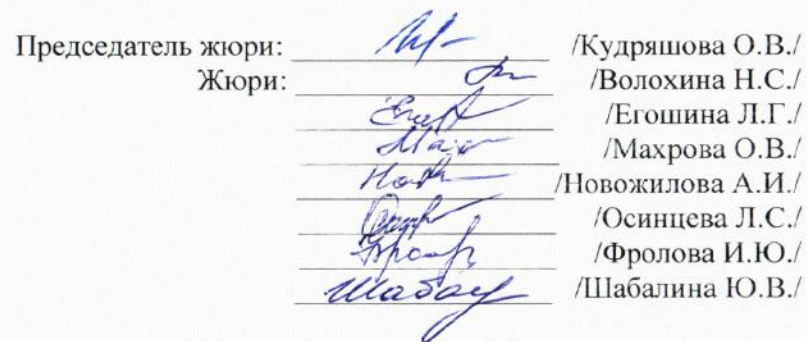 Председатель жюри: /Кудряшова О.В./
Жюри: /Волохина Н.С./
/Егошина Л.Г./
/Махрова О.В./
/Новожилова А.И./
/Осинцева Л.С./
/Фролова И.Ю./
/Шабалина Ю.В./